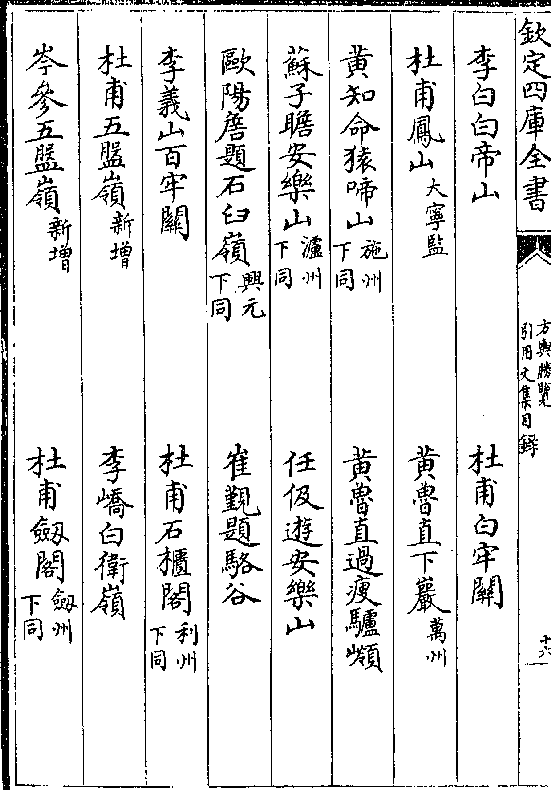 欽定四庫全書
方輿勝覽
引用文集目錄
十六
李白白帝山
杜甫白牢關
杜甫鳳山大寧監
黃魯直下巖萬州
黃知命猿啼山施州下同
黃魯直過瘦驢嶺
蘇子瞻安樂山瀘州下同
任伋遊安樂山
歐陽詹題石臼嶺興元下同
崔覲題駱谷
李義山百牢關
杜甫石櫃閣利州下同
杜甫五盤嶺新增
李嶠白衛嶺
岑參五盤嶺新增
杜甫劔閣劔州下同